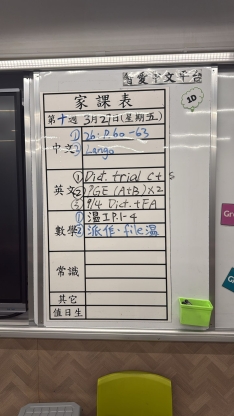 智愛中文平台
家課表
1D
第十週 3月21日(星期五)
中文 ① 26: P.60-63
② Lango
英文 ① Dict. trial c+s
② PGE (A+B) x2
③ 9/4 Dict.+FA
數學 ① 溫 I P.1-4
② 派作. file溫
常識
其它
值日生